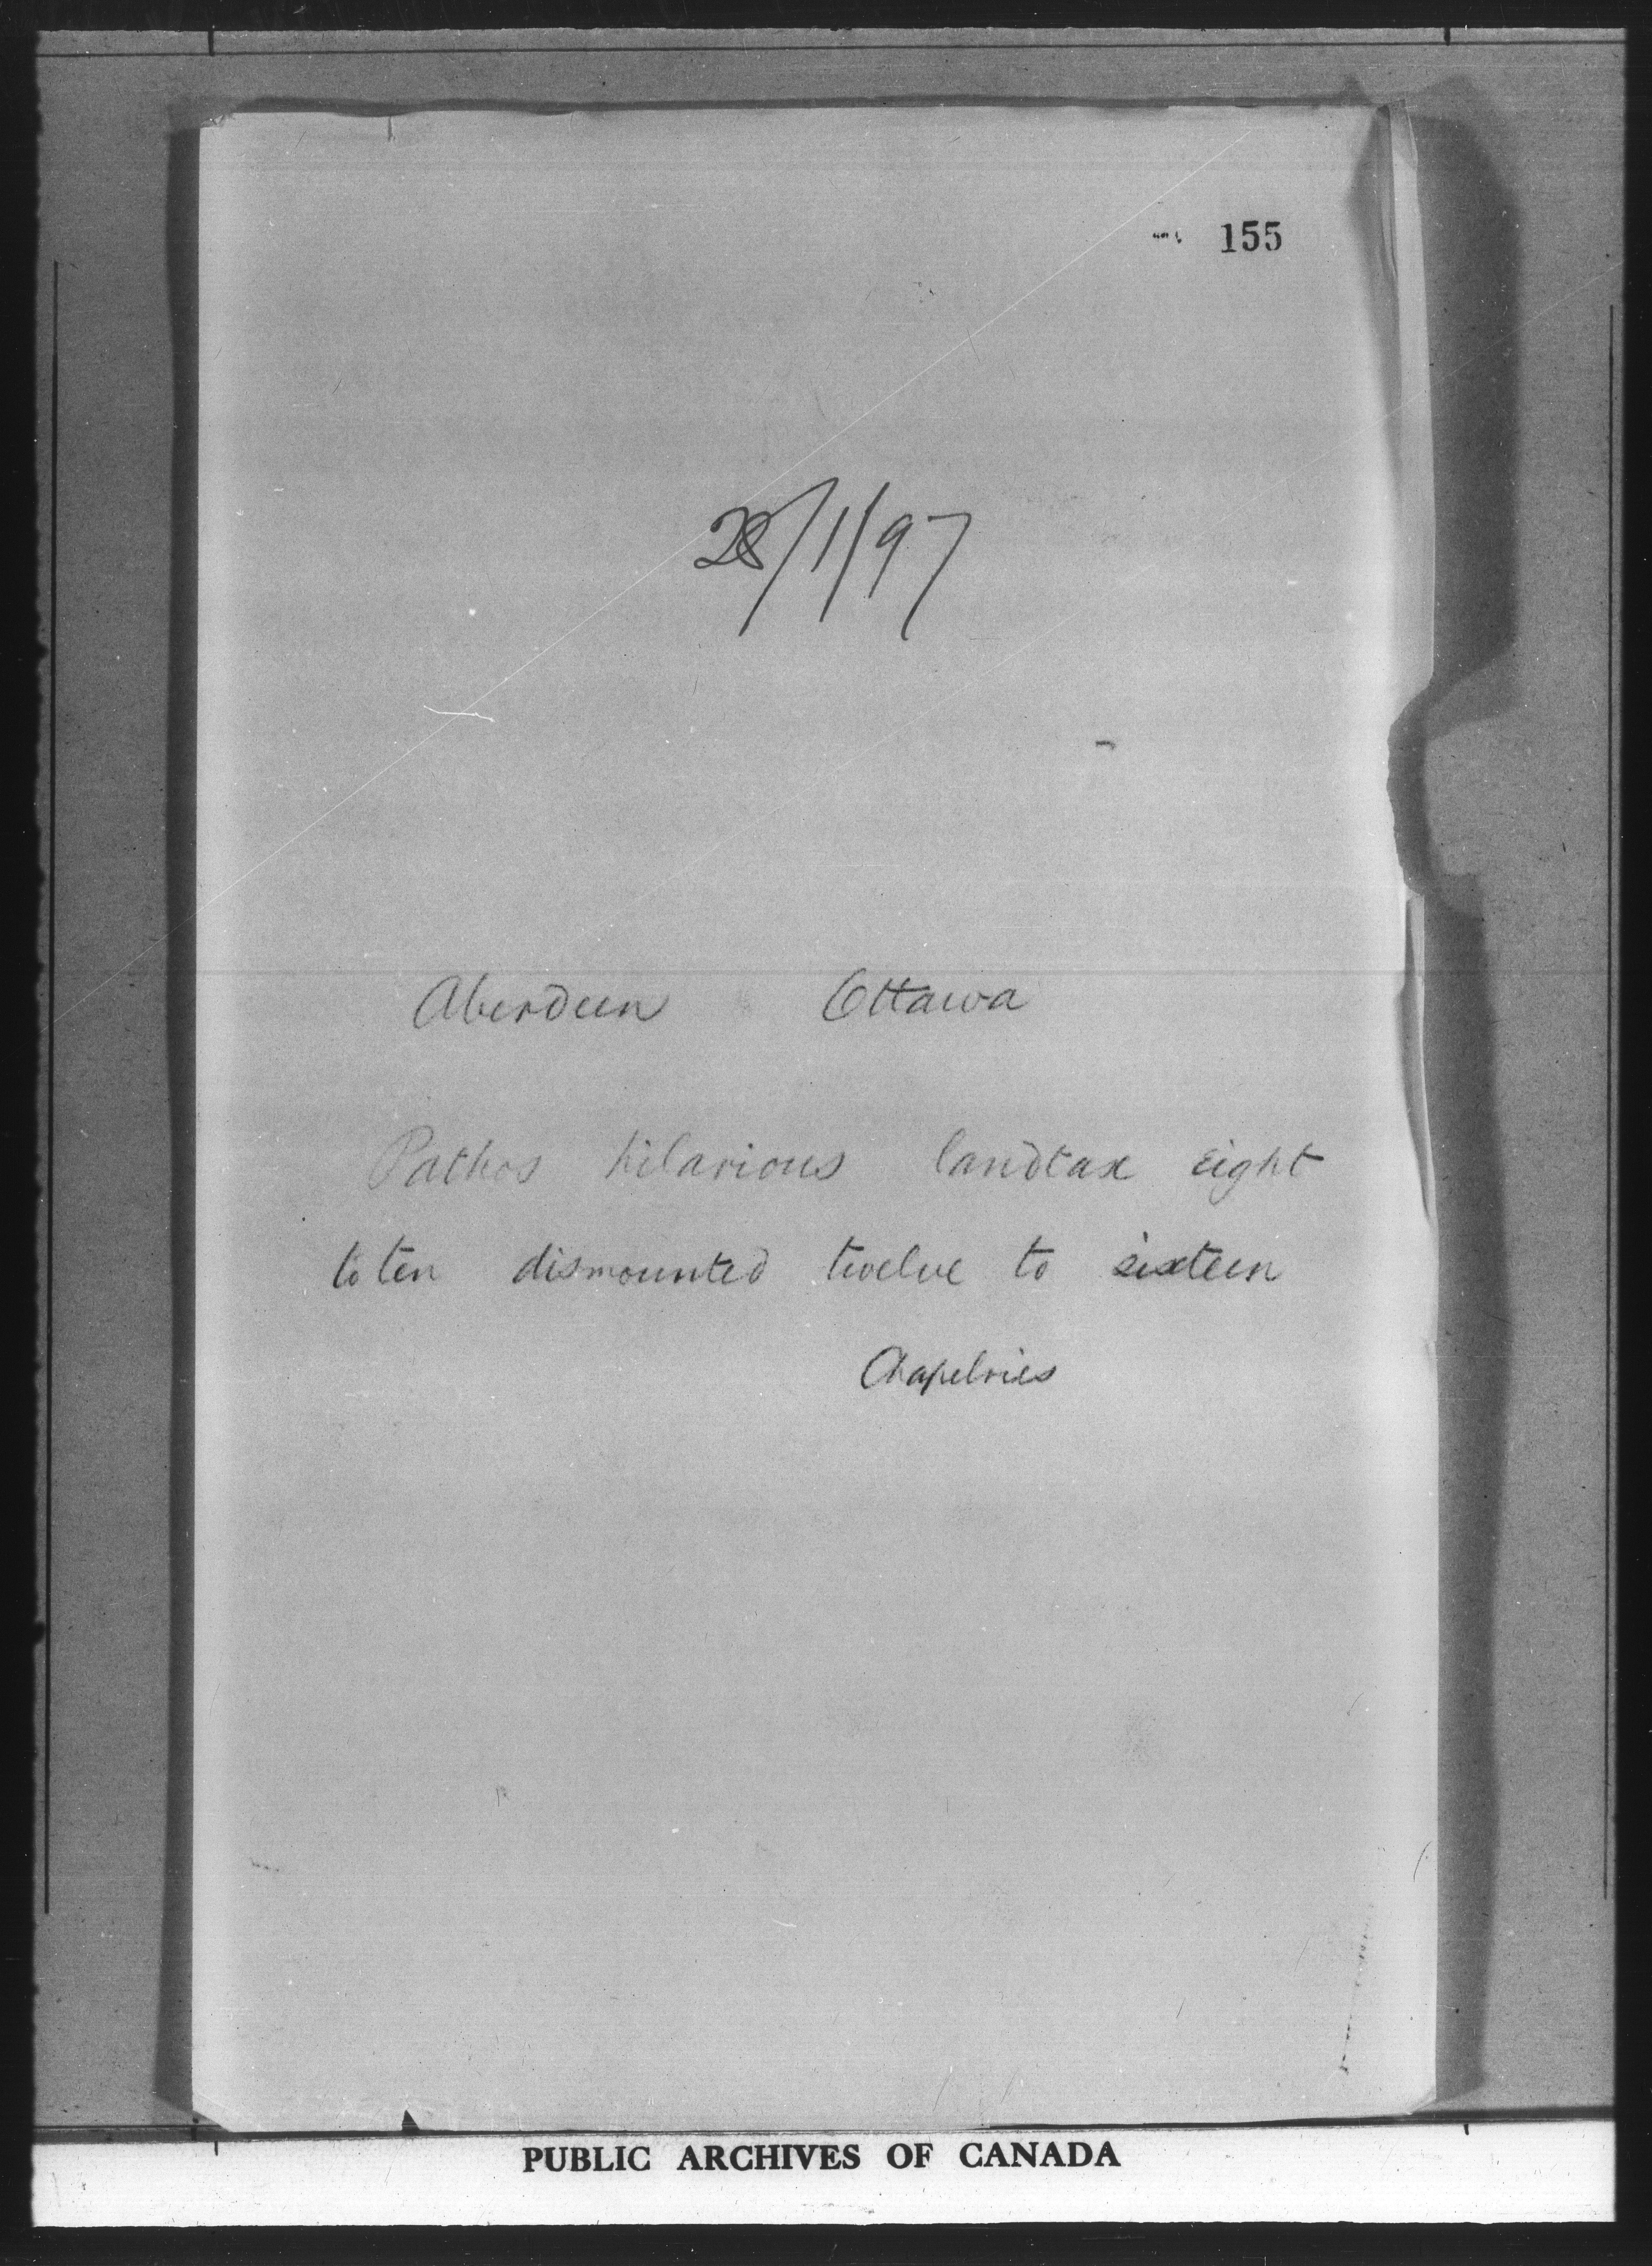 155
28/1/97
Aberdeen Ottawa
Pathos hilarious landtax eight
to ten dismounted twelve to sixteen
Chapelries
PUBLIC ARCHIVES OF CANADA